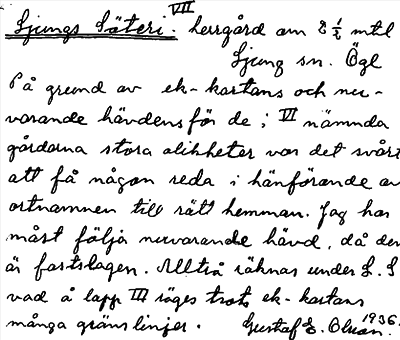 VII
Ljungs Säteri. herrgård om 8 1/2 mtl
Ljung sn. Ögl
På grund av ek-kartans och nu-
varande hävdens för de i VI nämnda
gårdarna stora olikheter var det svårt
att få någon reda i hänförande av
ortnamnen till rätt hemman. Jag har
måst följa nuvarande hävd, då den
är fastslagen. Alltså räknas under L. S
vad å lapp III säges trots ek-kartans
många gränslinjer. Gustaf E. Olsson. 1936.